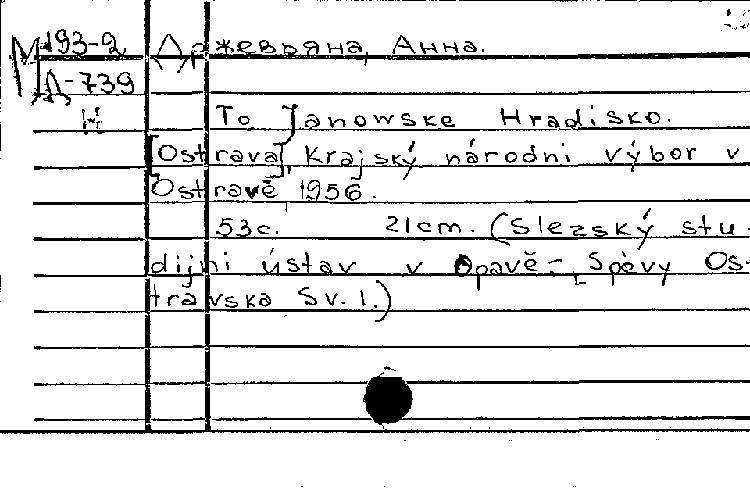 М 193-2 Држевряна, Анна.
Д-739
Н
To Janowske Hradisko.
[Ostrava], Krajský národni výbor v
Ostravě, 1956.
53с. 21cm. (Slezský stu-
dijni ústav v Opavě - Spévy Os-
travska Sv. 1.)